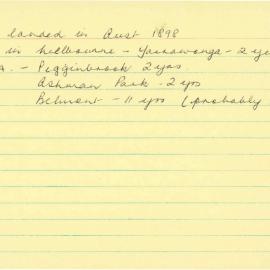 landed in Aust 1898
in Melbourne - Yarrawonga - 2 ye
A. - Pigginbrook 2 yrs.
Ashman Park - 2 yrs
Belmont - 11 yrs (probably